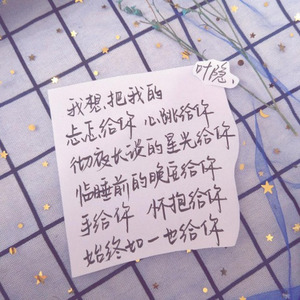 叶隐、
我想把我的
忐忑给你 心跳给你
彻夜长谈的星光给你
临睡前的晚安给你
手给你 怀抱给你
始终如一也给你